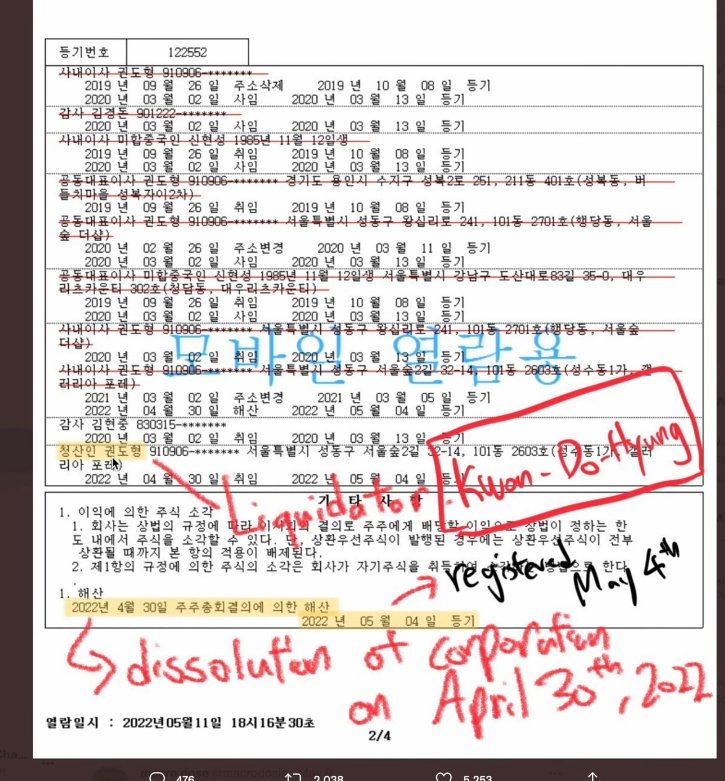 등기번호 122552
사내이사 권도형 910906-*******
2019 년 09 월 26 일 주소삭제 2019 년 10 월 08 일 등기
2020 년 03 월 02 일 사임 2020 년 03 월 13 일 등기
감사 김경돈 901222-*******
2020 년 03 월 02 일 사임 2020 년 03 월 13 일 등기
사내이사 미합중국인 신현성 1985년 11월 12일생
2019 년 09 월 26 일 취임 2019 년 10 월 08 일 등기
2020 년 03 월 02 일 사임 2020 년 03 월 13 일 등기
공동대표이사 권도형 910906-******* 경기도 용인시 수지구 성복2로 251, 211동 401호(성복동, 버
들치마을 성복자이2차)
2019 년 09 월 26 일 취임 2019 년 10 월 08 일 등기
공동대표이사 권도형 910906-******* 서울특별시 성동구 왕십리로 241, 101동 2701호(행당동, 서울
숲 더샵)
2020 년 02 월 26 일 주소변경 2020 년 03 월 11 일 등기
2020 년 03 월 02 일 사임 2020 년 03 월 13 일 등기
공동대표이사 미합중국인 신현성 1985년 11월 12일생 서울특별시 강남구 도산대로83길 35-0, 대우
리츠카운티 302호(청담동, 대우리츠카운티)
2019 년 09 월 26 일 취임 2019 년 10 월 08 일 등기
2020 년 03 월 02 일 사임 2020 년 03 월 13 일 등기
사내이사 권도형 910906-******* 서울특별시 성동구 왕십리로 241, 101동 2701호(행당동, 서울숲
더샵)
2020 년 03 월 02 일 취임 2020 년 03 월 13 일 등기
모바일 열람용
사내이사 권도형 910906-******* 서울특별시 성동구 서울숲2길 32-14, 101동 2603호(성수동1가, 갤
러리아 포레)
2021 년 03 월 02 일 주소변경 2021 년 03 월 05 일 등기
2022 년 04 월 30 일 해산 2022 년 05 월 04 일 등기
감사 김현중 830315-*******
2020 년 03 월 02 일 취임 2020 년 03 월 13 일 등기
청산인 권도형 910906-******* 서울특별시 성동구 서울숲2길 32-14, 101동 2603호(성수동1가, 갤러
리아 포레)
2022 년 04 월 30 일 취임 2022 년 05 월 04 일 등기
Liquidator - Kwon-Do-Hyung
기 타 사 항
1. 이익에 의한 주식 소각
1. 회사는 상법의 규정에 따라 이사회의 결의로 주주에게 배당할 이익으로 상법이 정하는 한
도 내에서 주식을 소각할 수 있다. 단, 상환우선주식이 발행된 경우에는 상환우선주식이 전부
상환될 때까지 본 항의 적용이 배제된다.
2. 제1항의 규정에 의한 주식의 소각은 회사가 자기주식을 취득하여 한다
.
registered May 4th
1. 해산
2022년 4월 30일 주주총회결의에 의한 해산
2022 년 05 월 04 일 등기
dissolution of corporation
on April 30th, 2022
열람일시 : 2022년05월11일 18시16분30초
2/4
476 2,038 5,253